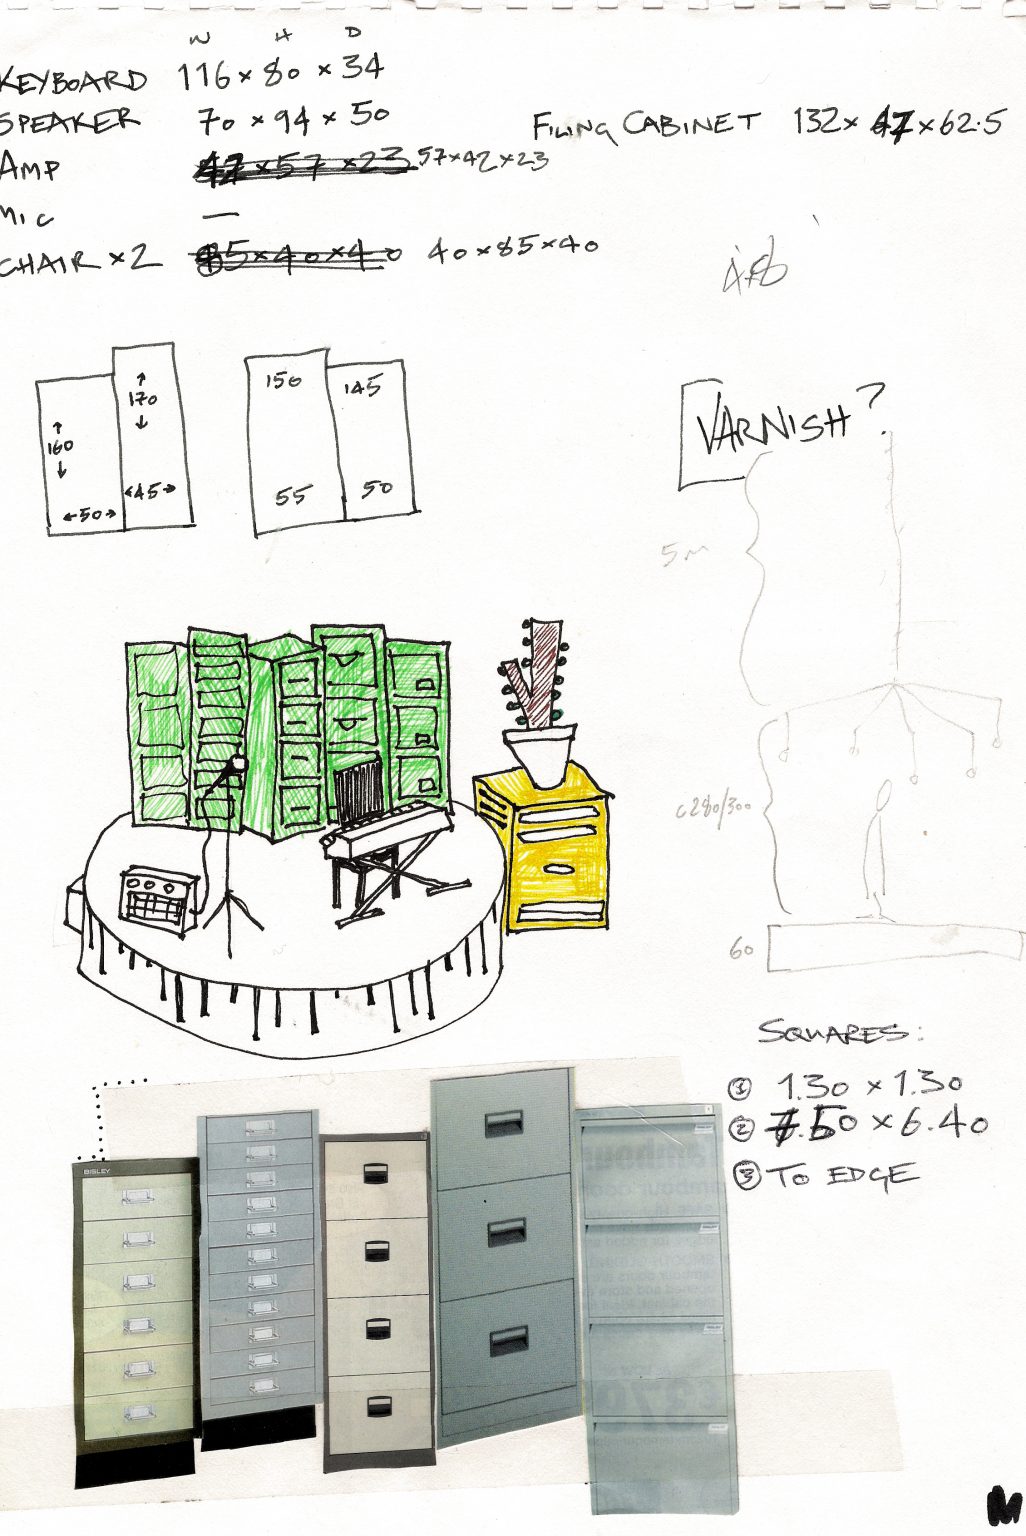 W H D
KEYBOARD 116 x 80 x 34
SPEAKER 70 x 94 x 50
FILING CABINET 132 x 47 x 62.5
AMP 42 x 57 x 23 57 x 42 x 23
MIC —
CHAIR x 2 85 x 40 x 40 40 x 85 x 40
170
160
45
50
150
145
55
50
VARNISH?
5m
c280/300
60
SQUARES:
① 1.30 x 1.30
② 7.50 x 6.40
③ TO EDGE
BISLEY